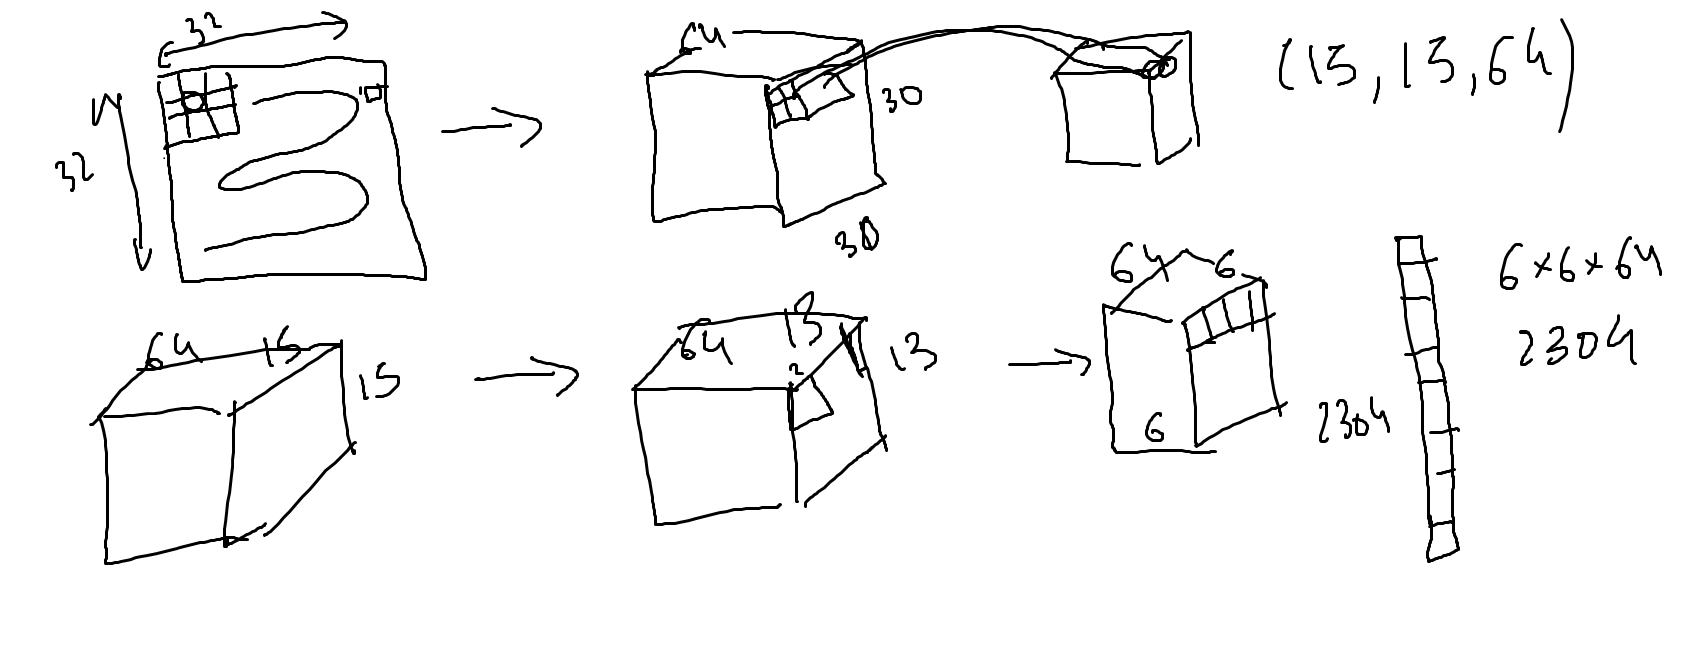 32
32
64
30
30
(15,15,64)
64 15
15
64 13
13
2
64 6
6
2304
6×6×64
2304